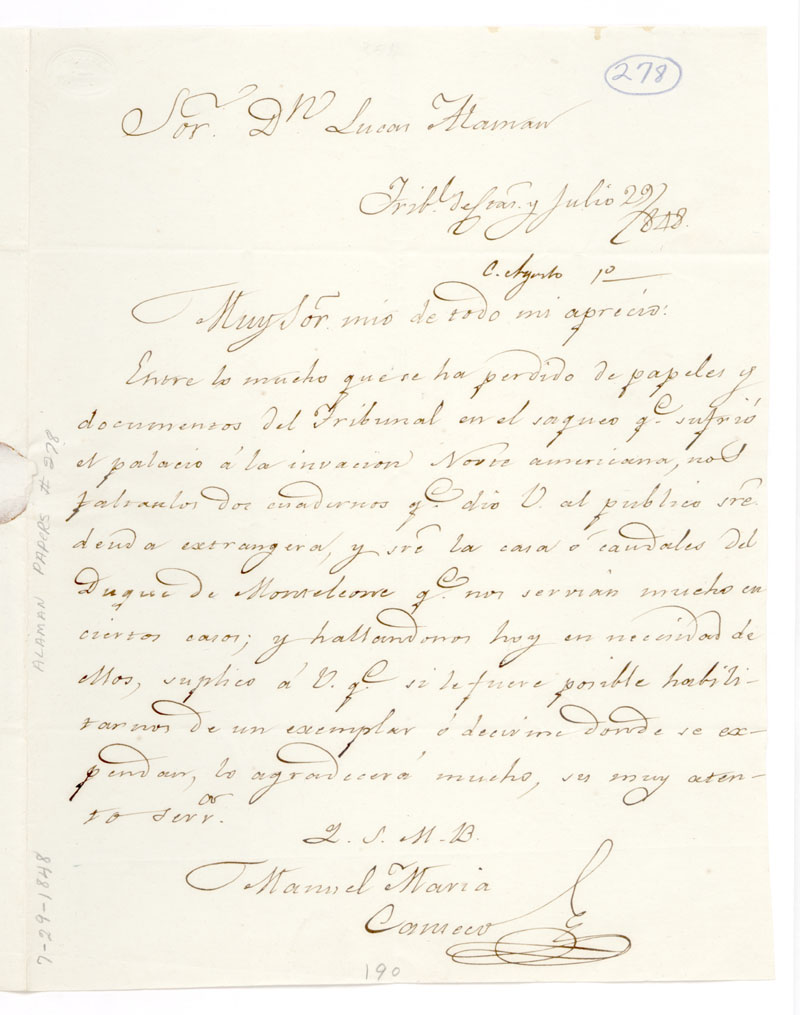 278
Sor. Dn Lucas Alaman
Tribl. de Ctas. y Julio 29/
1848.
C. Agosto 1o
Muy Sor. mio de todo mi aprecio:
Entre lo mucho que se ha perdido de papeles y
documentos del Tribunal en el saqueo qe. sufrió
el palacio á la invacion Norte americana, nos
faltan los dos cuadernos qe. dio V. al publico sre.
deuda extrangera, y sre. la casa ó caudales del
Duque de Monteleone qe. nos servian mucho en
ciertos casos; y hallandonos hoy en necesidad de
ellos, suplico á V. qe. si le fuere posible habili-
tarnos de un exemplar ó decirme donde se ex-
pendan, lo agradecerá mucho, su muy aten-
to serr.or
Q. S. M. B.
Manuel Maria
190
ALAMAN PAPERS # 278
7-29-1848